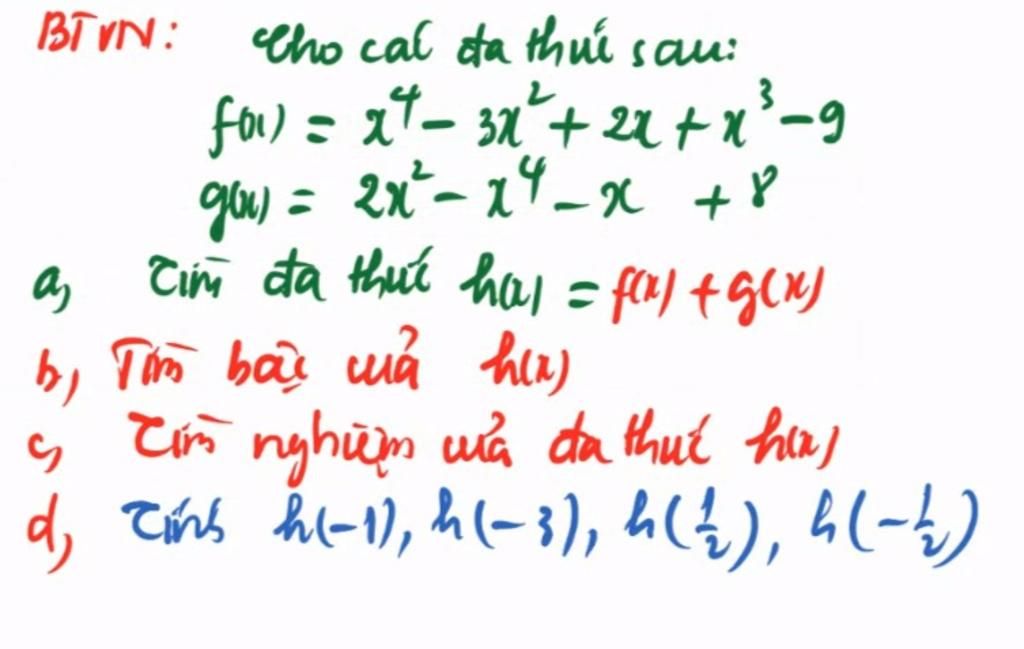 BTVN: Cho các đa thức sau:
f(x) = x⁴ - 3x² + 2x + x³ - 9
g(x) = 2x² - x⁴ - x + 8
a, Tìm đa thức h(x) = f(x) + g(x)
b, Tìm bậc của h(x)
c, Tìm nghiệm của đa thức h(x)
d, Tính h(-1), h(-3), h(1/2), h(-1/2)